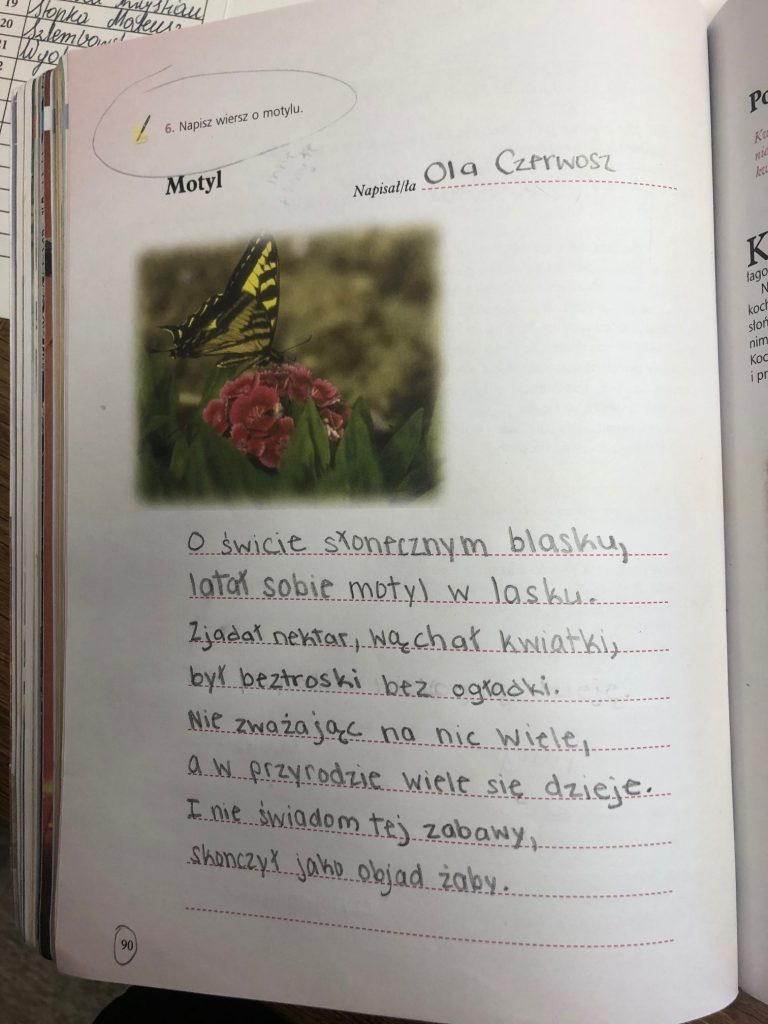 19
20 Słopka Mateusz
21
2
6. Napisz wiersz o motylu.
Motyl
Napisał/ła Ola Czerwosz
O świcie słonecznym blasku,
latał sobie motyl w lasku.
Zjadał nektar, wąchał kwiatki,
był beztroski bez ogładki.
Nie zważając na nic wiele,
a w przyrodzie wiele się dzieje.
I nie świadom tej zabawy,
skonczył jako objad żaby.
90
K
łago
N
koch
słoń
nim
Koc
i pr